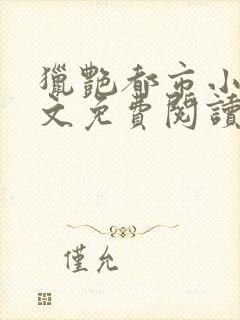 獵艷都市小
文免費閱讀
僅允